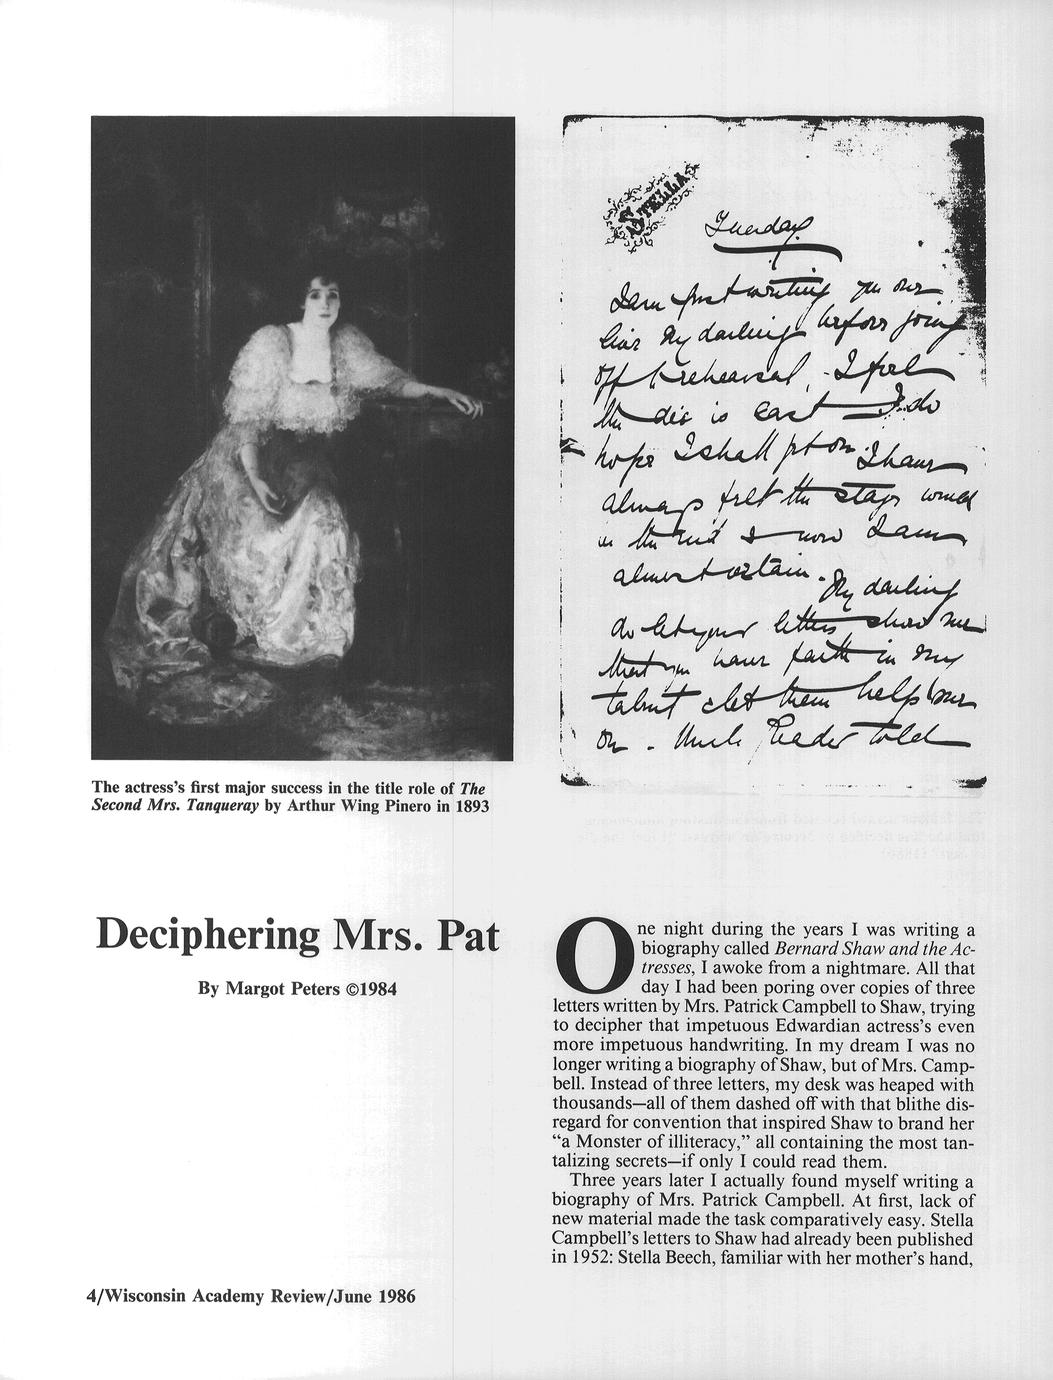 STELLA
Tuesday
I am just writing you one
line my darling before going
off to rehearsal, - I feel
the die is cast — I do
hope I shall get on. I have
always felt the stage would
in the end & now I am
almost certain. My darling
do let your letters show me
that you have faith in my
talent & let them help me
on - Uncle told
The actress's first major success in the title role of The
Second Mrs. Tanqueray by Arthur Wing Pinero in 1893
Deciphering Mrs. Pat
By Margot Peters ©1984
One night during the years I was writing a
biography called Bernard Shaw and the Ac-
tresses, I awoke from a nightmare. All that
day I had been poring over copies of three
letters written by Mrs. Patrick Campbell to Shaw, trying
to decipher that impetuous Edwardian actress's even
more impetuous handwriting. In my dream I was no
longer writing a biography of Shaw, but of Mrs. Camp-
bell. Instead of three letters, my desk was heaped with
thousands—all of them dashed off with that blithe dis-
regard for convention that inspired Shaw to brand her
“a Monster of illiteracy,” all containing the most tan-
talizing secrets—if only I could read them.
Three years later I actually found myself writing a
biography of Mrs. Patrick Campbell. At first, lack of
new material made the task comparatively easy. Stella
Campbell's letters to Shaw had already been published
in 1952: Stella Beech, familiar with her mother's hand,
4/Wisconsin Academy Review/June 1986